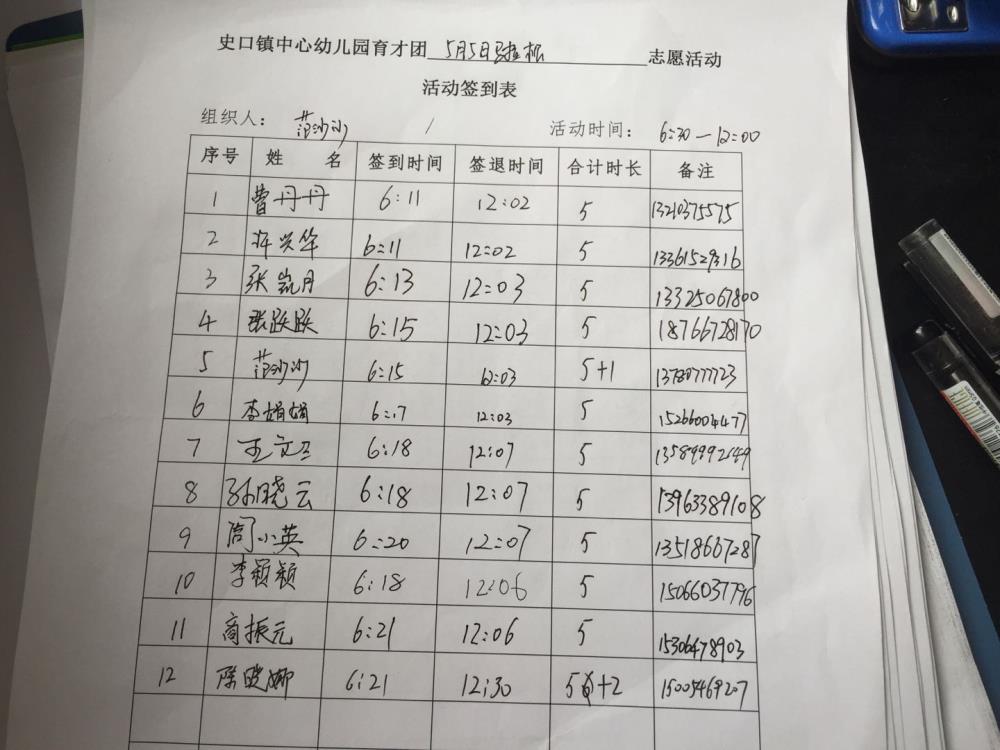 史口镇中心幼儿园育才团 5月5日 志愿活动
活动签到表
组织人： 范沙沙 / 活动时间： 6:30—12:00
序号 姓名 签到时间 签退时间 合计时长 备注
1 曹丹丹 6:11 12:02 5 13210375575
2 许兴华 6:11 12:02 5 13361529316
3 张岚月 6:13 12:03 5 13325067800
4 张跃跃 6:15 12:03 5 18766728170
5 范沙沙 6:15 12:03 5+1 13780777723
6 李娟娟 6:17 12:03 5 15266004477
7 王文 6:18 12:07 5 13589992649
8 孙晓云 6:18 12:07 5 13963389108
9 周小英 6:20 12:07 5 13518667287
10 李颖颖 6:18 12:06 5 15066037796
11 商振元 6:21 12:06 5 15306478903
12 陈晓娜 6:21 12:30 5+2 15005469207